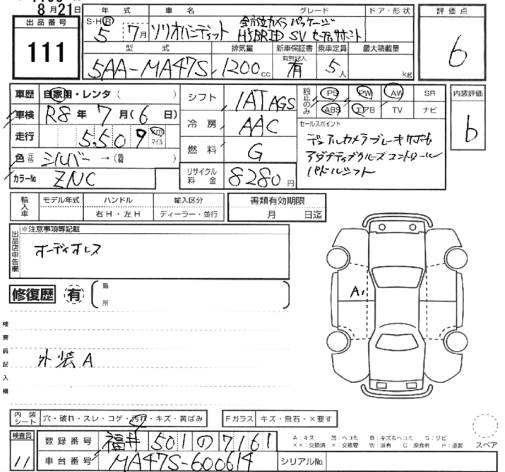 8月21日
出品番号
111
年式 車名 グレード ドア・形状
S・H・R
5年 7月 ソリオバンディット 全方位カメラパッケージ
HYBRID SV セーフティサポート
型式 排気量 新車保証書 乗車定員 最大積載量
5AA-MA47S 1200cc 有 5人 kg
評価点
6
車歴 自家用・レンタ
車検 R8年7月(6)日
走行 5,509
マイル
色 シルバー → ( )
カラーNo ZNC
シフト IAT AGS
冷房 AAC
燃料 G
リサイクル料金 8280円
PS PW AW SR
ABS エアB TV ナビ
セールスポイント
デュアルカメラブレーキサポート
アダプティブクルーズコントロール
パドルシフト
内装評価
b
輸入車 モデル年式 ハンドル 輸入区分
年 右H・左H ディーラー・並行
書類有効期限
月 日迄
出品店申告欄
※注意事項等記載
オーディオレス
修復歴 有
箇所
検査員記入欄
外装A
A1
内装シート 穴・破れ・スレ・コゲ・汚れ・キズ・黄ばみ
Fガラス キズ・飛石・×要す
検査員
11
登録番号 福井 501 の 7161
車台番号 MA47S-600614
シリアルNo
スペア